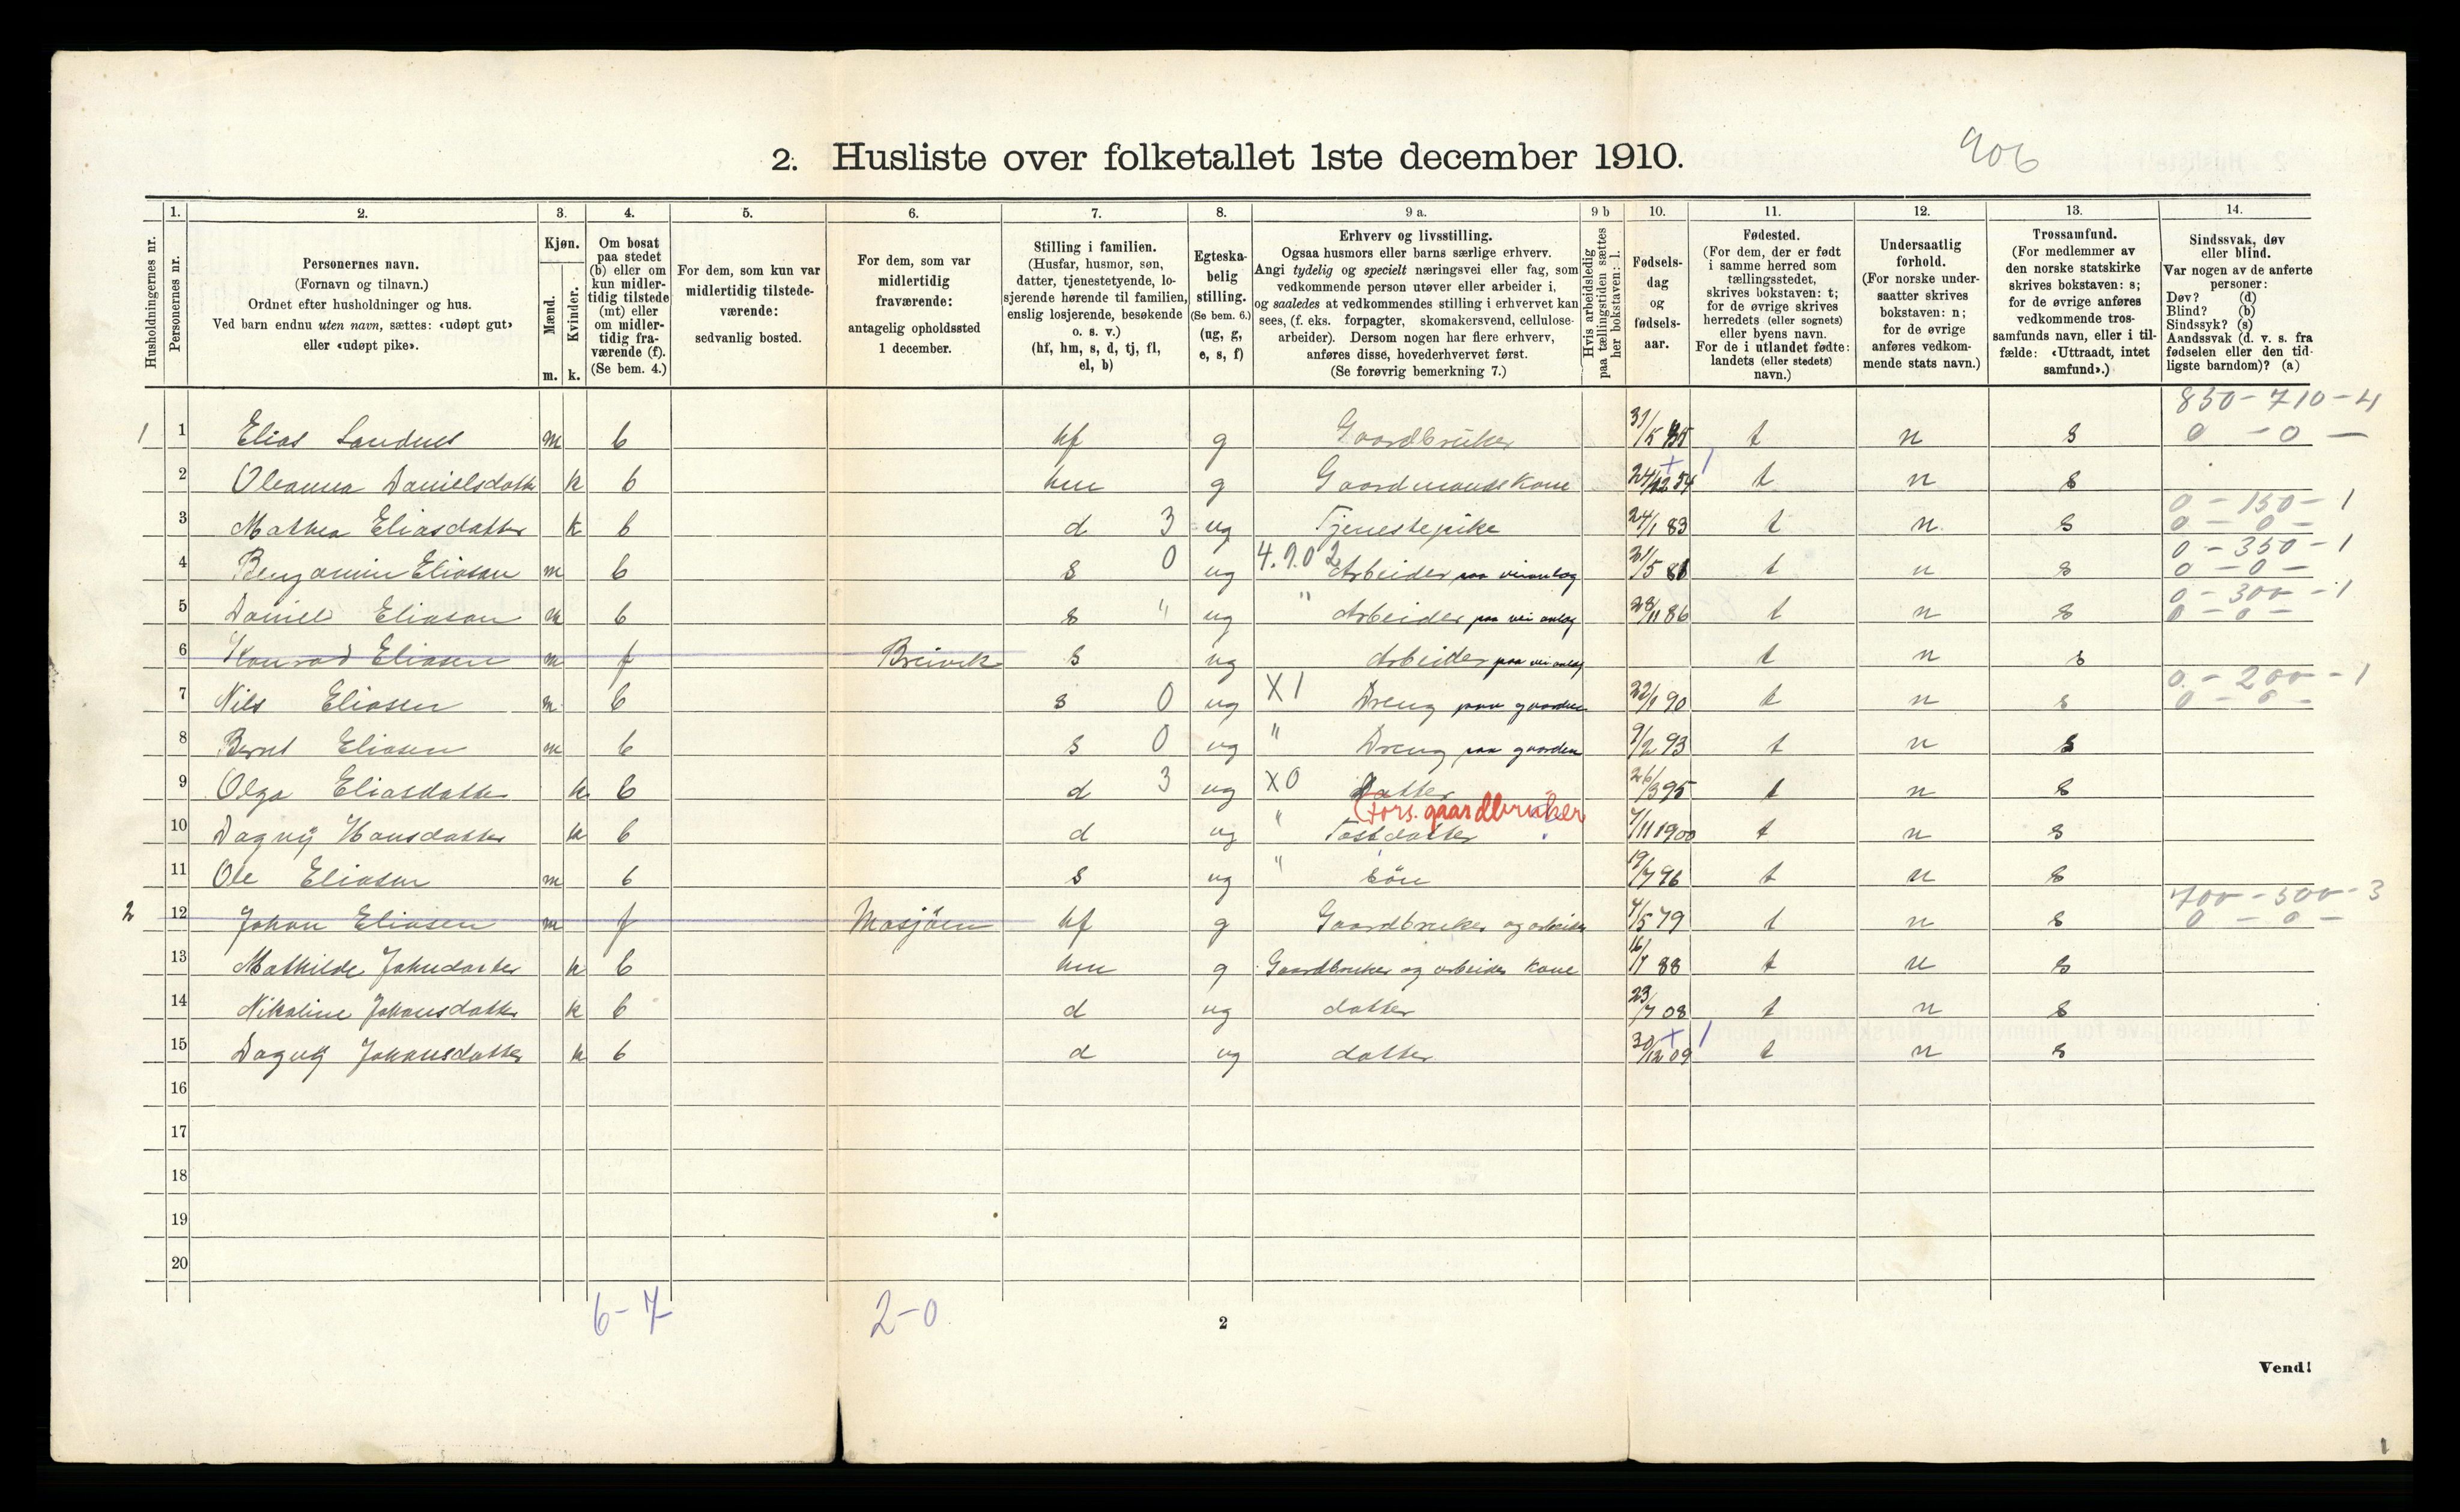 906
2. Husliste over folketallet 1ste december 1910.
1. 2. 3. 4. 5. 6. 7. 8. 9 a. 9 b 10. 11. 12. 13. 14.
Husholdningernes nr.
Personernes nr.
Personernes navn.
(Fornavn og tilnavn.)
Ordnet efter husholdninger og hus.
Ved barn endnu uten navn, sættes: «udøpt gut»
eller «udøpt pike».
Kjøn.
Mænd.
Kvinder.
m. k.
Om bosat
paa stedet
(b) eller om
kun midler-
tidig tilstede
(mt) eller
om midler-
tidig fra-
værende (f).
(Se bem. 4.)
For dem, som kun var
midlertidig tilstede-
værende:
sedvanlig bosted.
For dem, som var
midlertidig
fraværende:
antagelig opholdssted
1 december.
Stilling i familien.
(Husfar, husmor, søn,
datter, tjenestetyende, lo-
sjerende hørende til familien,
enslig losjerende, besøkende
o. s. v.)
(hf, hm, s, d, tj, fl,
el, b)
Egteska-
belig
stilling.
(Se bem. 6.)
(ug, g,
e, s, f)
Erhverv og livsstilling.
Ogsaa husmors eller barns særlige erhverv.
Angi tydelig og specielt næringsvei eller fag, som
vedkommende person utøver eller arbeider i,
og saaledes at vedkommendes stilling i erhvervet kan
sees, (f. eks. forpagter, skomakersvend, cellulose-
arbeider). Dersom nogen har flere erhverv,
anføres disse, hovederhvervet først.
(Se forøvrig bemerkning 7.)
Hvis arbeidsledig
paa tællingstiden sættes
her bokstaven: l.
Fødsels-
dag
og
fødsels-
aar.
Fødested.
(For dem, der er født
i samme herred som
tællingsstedet,
skrives bokstaven: t;
for de øvrige skrives
herredets (eller sognets)
eller byens navn.
For de i utlandet fødte:
landets (eller stedets)
navn.)
Undersaatlig
forhold.
(For norske under-
saatter skrives
bokstaven: n;
for de øvrige
anføres vedkom-
mende stats navn.)
Trossamfund.
(For medlemmer av
den norske statskirke
skrives bokstaven: s;
for de øvrige anføres
vedkommende tros-
samfunds navn, eller i til-
fælde: «Uttraadt, intet
samfund».)
Sindssvak, døv
eller blind.
Var nogen av de anførte
personer:
Døv? (d)
Blind? (b)
Sindssyk? (s)
Aandssvak (d. v. s. fra
fødselen eller den tid-
ligste barndom)? (a)
850-710-4
1 1 Elias Sandnes m b hf g Gaardbruker 31/5 t n s 0 -0 -
2 Oleanna Danielsdatter k b hm g Gaardmandskone 24/12 54 t n s
0 - 150 - 1
3 Mathea Eliasdatter k b d 3 ug Tjenestepike 24/1 83 t n s 0 - 0 -
0 - 350 - 1
4 Benjamin Eliasen m b s 0 ug 4.9.02 Arbeider paa veianlæg 31/5 81 t n s 0 -0 -
0 - 300 - 1
5 Daniel Eliasen m b s " ug " Arbeider paa vei anlæg 28/11 86 t n s 0 - 0 -
6 Konrad Eliasen m f Breivik s ug Arbeider paa vei anlæg t n s
0 - 200 - 1
7 Nils Eliasen m b s 0 ug X1 Dreng paa gaarden 22/9 90 t n s 0 - 0 -
8 Bernt Eliasen m b s 0 ug " Dreng paa gaarden 9/2 93 t n s
9 Olga Eliasdatter k b d 3 ug X0 Datter 26/3 95 t n s
(fors. gaardbruker
10 Dagny Hansdatter k b d ug " Fostdatter 7/11 1900 t n s
11 Ole Eliasen m b s ug " Sön 19/7 96 t n s
700-500-3
2 12 Johan Eliasen m f Mosjöen hf g Gaardbruker og arbeider 4/5 79 t n s 0 - 0 -
13 Mathilde Johndatter k b hm g Gaardbruker og arbeider kone 16/7 88 t n s
14 Nikoline Johansdatter k b d ug datter 23/7 08 t n s
15 Dagny Johansdatter k b d ug datter 30/12 09 t n s
16
17
18
19
20
6-7 2-0
2
Vend!